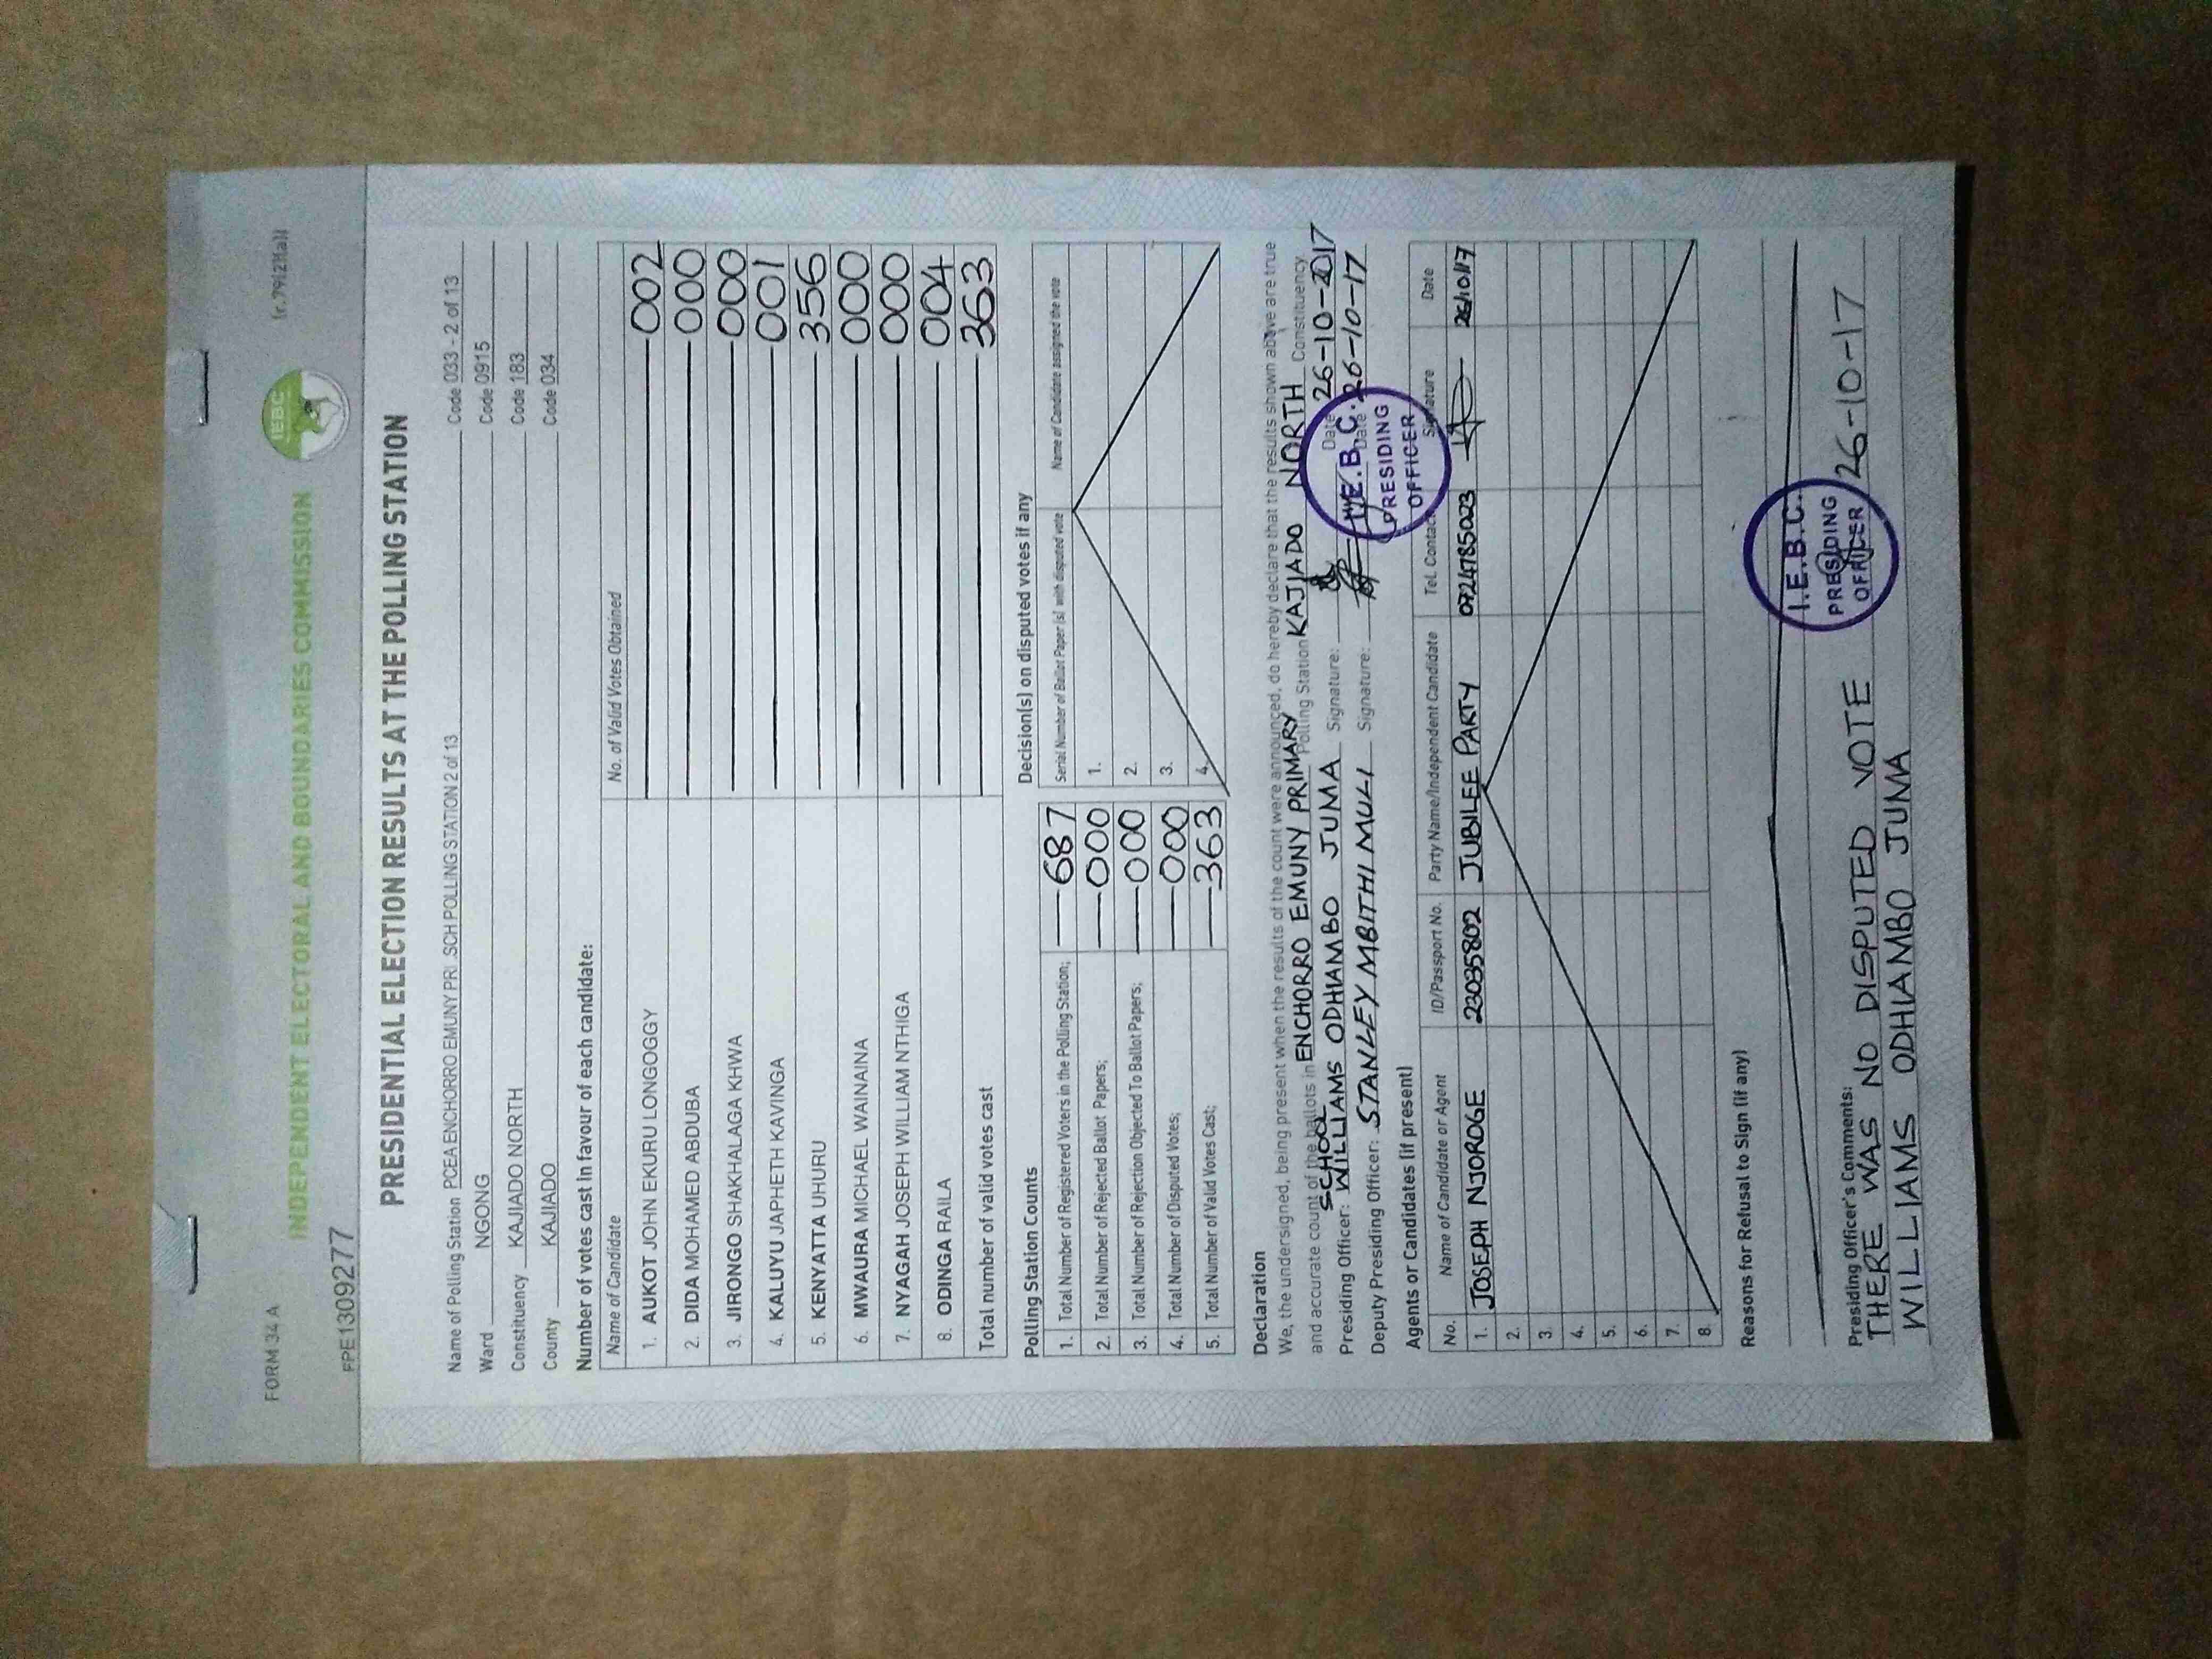 FORM 34 A
INDEPENDENT ELECTORAL AND BOUNDARIES COMMISSION
IEBC
(r.79(2)(a))
FPE1309277
PRESIDENTIAL ELECTION RESULTS AT THE POLLING STATION
Name of Polling Station PCEA ENCHORRO EMUNY PRI .SCH POLLING STATION 2 of 13 Code 033 - 2 of 13
Ward NGONG Code 0915
Constituency KAJIADO NORTH Code 183
County KAJIADO Code 034
Number of votes cast in favour of each candidate:
Name of Candidate No. of Valid Votes Obtained
1. AUKOT JOHN EKURU LONGOGGY 002
2. DIDA MOHAMED ABDUBA 000
3. JIRONGO SHAKHALAGA KHWA 000
4. KALUYU JAPHETH KAVINGA 001
5. KENYATTA UHURU 356
6. MWAURA MICHAEL WAINAINA 000
7. NYAGAH JOSEPH WILLIAM NTHIGA 000
8. ODINGA RAILA 004
Total number of valid votes cast 363
Polling Station Counts
1. Total Number of Registered Voters in the Polling Station; 687
2. Total Number of Rejected Ballot Papers; 000
3. Total Number of Rejection Objected To Ballot Papers; 000
4. Total Number of Disputed Votes; 000
5. Total Number of Valid Votes Cast; 363
Decision(s) on disputed votes if any
Serial Number of Ballot Paper (s) with disputed vote Name of Candidate assigned the vote
1.
2.
3.
4.
Declaration
We, the undersigned, being present when the results of the count were announced, do hereby declare that the results shown above are true
and accurate count of the ballots in ENCHORRO EMUNY PRIMARY SCHOOL Polling Station KAJIADO NORTH Constituency.
Presiding Officer: WILLIAMS ODHIAMBO JUMA Signature: Date 26-10-2017
Deputy Presiding Officer: STANLEY MBITHI MULI Signature: Date 26-10-17
I.E.B.C.
PRESIDING
OFFICER
Agents or Candidates (if present)
No. Name of Candidate or Agent ID/Passport No. Party Name/Independent Candidate Tel. Contact Signature Date
1. JOSEPH NJOROGE 23035802 JUBILEE PARTY 0724785023 26/10/17
2.
3.
4.
5.
6.
7.
8.
Reasons for Refusal to Sign (if any)
Presiding Officer's Comments:
THERE WAS NO DISPUTED VOTE
WILLIAMS ODHIAMBO JUMA
I.E.B.C.
PRESIDING
OFFICER
26-10-17